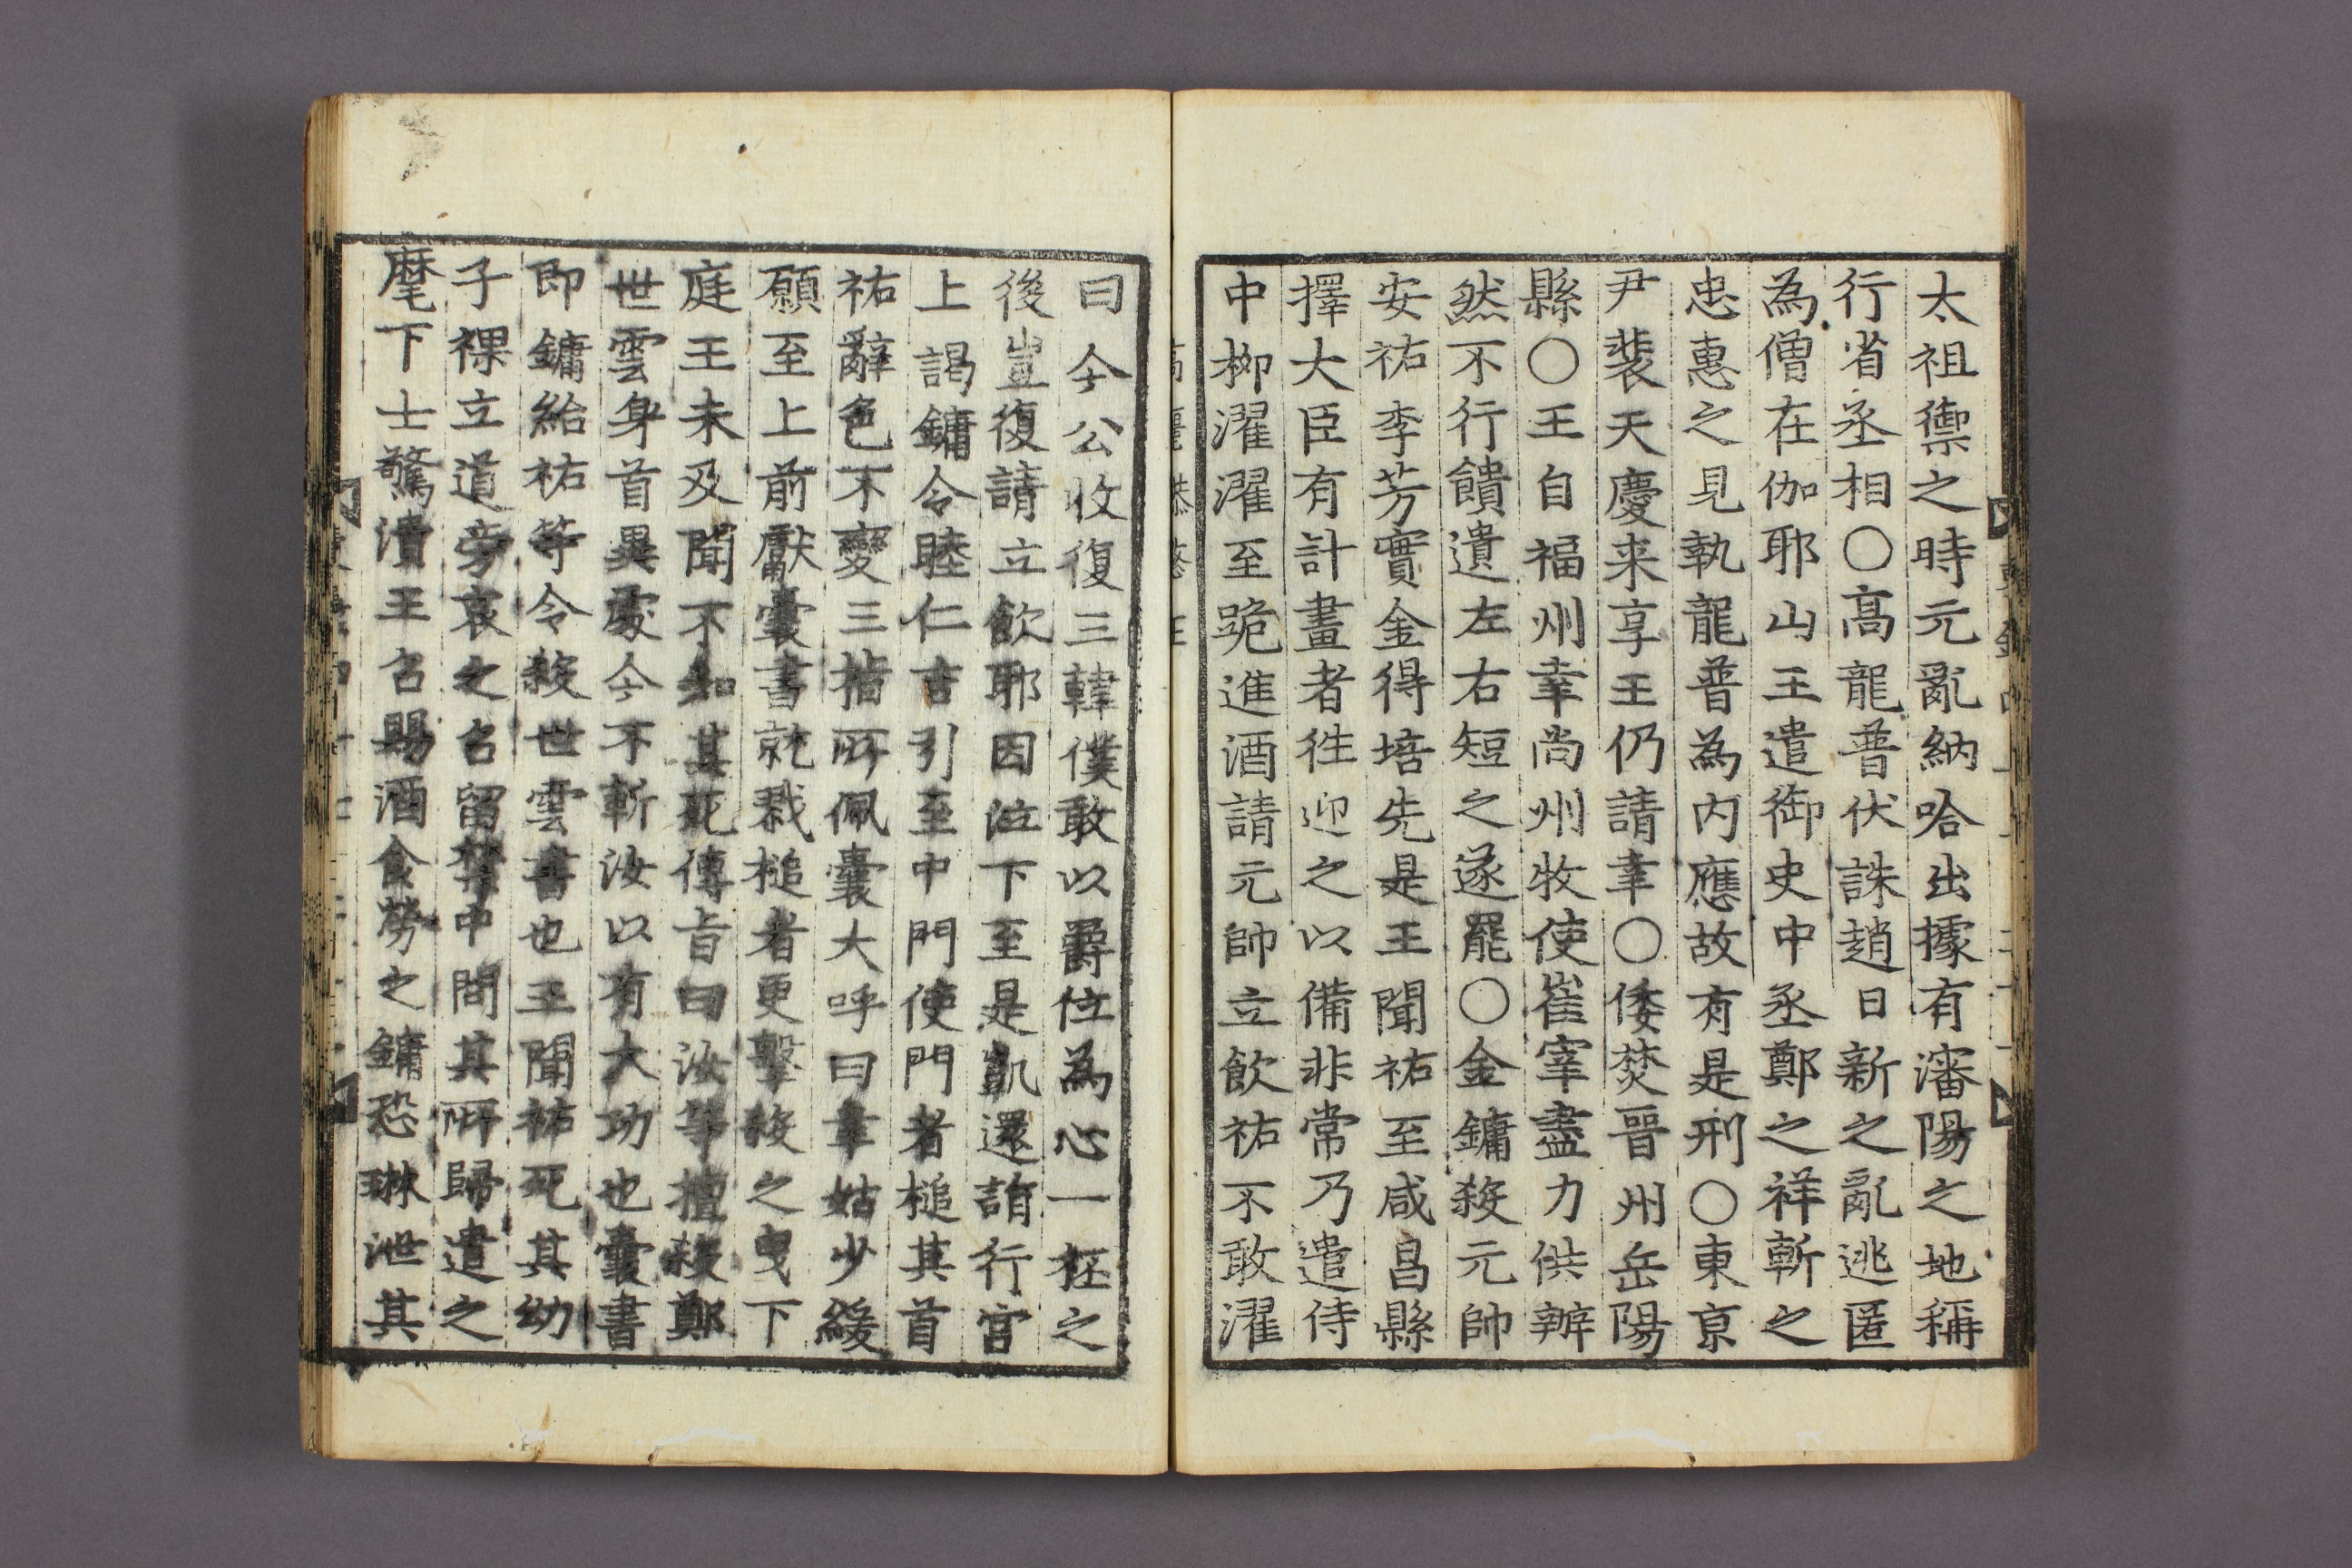 太祖禦之時元亂納哈出據有瀋陽之地稱
行省丞相〇高龍普伏誅趙日新之亂逃匿
為僧在伽耶山王遣御史中丞鄭之祥斬之
忠惠之見執龍普為内應故有是刑〇東京
尹裴天慶来享王仍請幸〇倭焚晉州岳陽
縣〇王自福州幸尚州牧使崔宰盡力供辨
然不行饋遺左右短之遂罷〇金鏞殺元帥
安祐李芳實金得培先是王聞祐至咸昌縣
擇大臣有計畫者徃迎之以備非常乃遣侍
中柳濯濯至跪進酒請元帥立飲祐不敢濯
曰今公收復三韓僕敢以爵位為心一枉之
後豈復請立飲耶因泣下至是凱還詣行宮
上謁鏞令睦仁吉引至中門使門者槌其首
祐辭色不變三指所佩囊大呼曰幸姑少緩
願至上前獻囊書就戮槌者更擊殺之曳下
庭王未及聞不知其死傳旨曰汝等擅殺鄭
世雲身首異處今不斬汝以有大功也囊書
即鏞給祐等令殺世雲書也王聞祐死其幼
子裸立道旁哀之召留禁中問其所歸遣之
麾下士驚潰王召賜酒食勞之鏞恐琳泄其